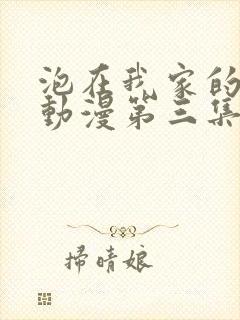 泡在我家的
動漫第三集
掃晴娘